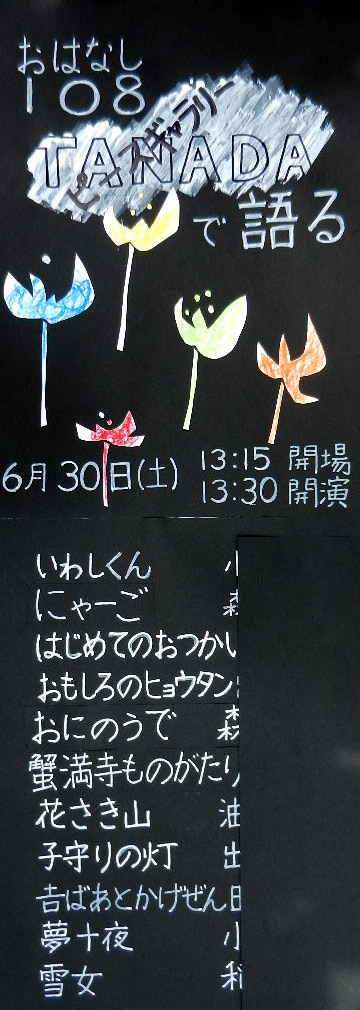 おはなし
108
ピースギャラリー
TANADA
で語る
6月30日(土)
13:15 開場
13:30 開演
いわしくん 小
にゃーご 森
はじめてのおつかい
おもしろのヒョウタン
おにのうで 森
蟹満寺ものがたり
花さき山 油
子守りの灯 出
吉ばあとかげぜん 田
夢十夜 小
雪女 稲